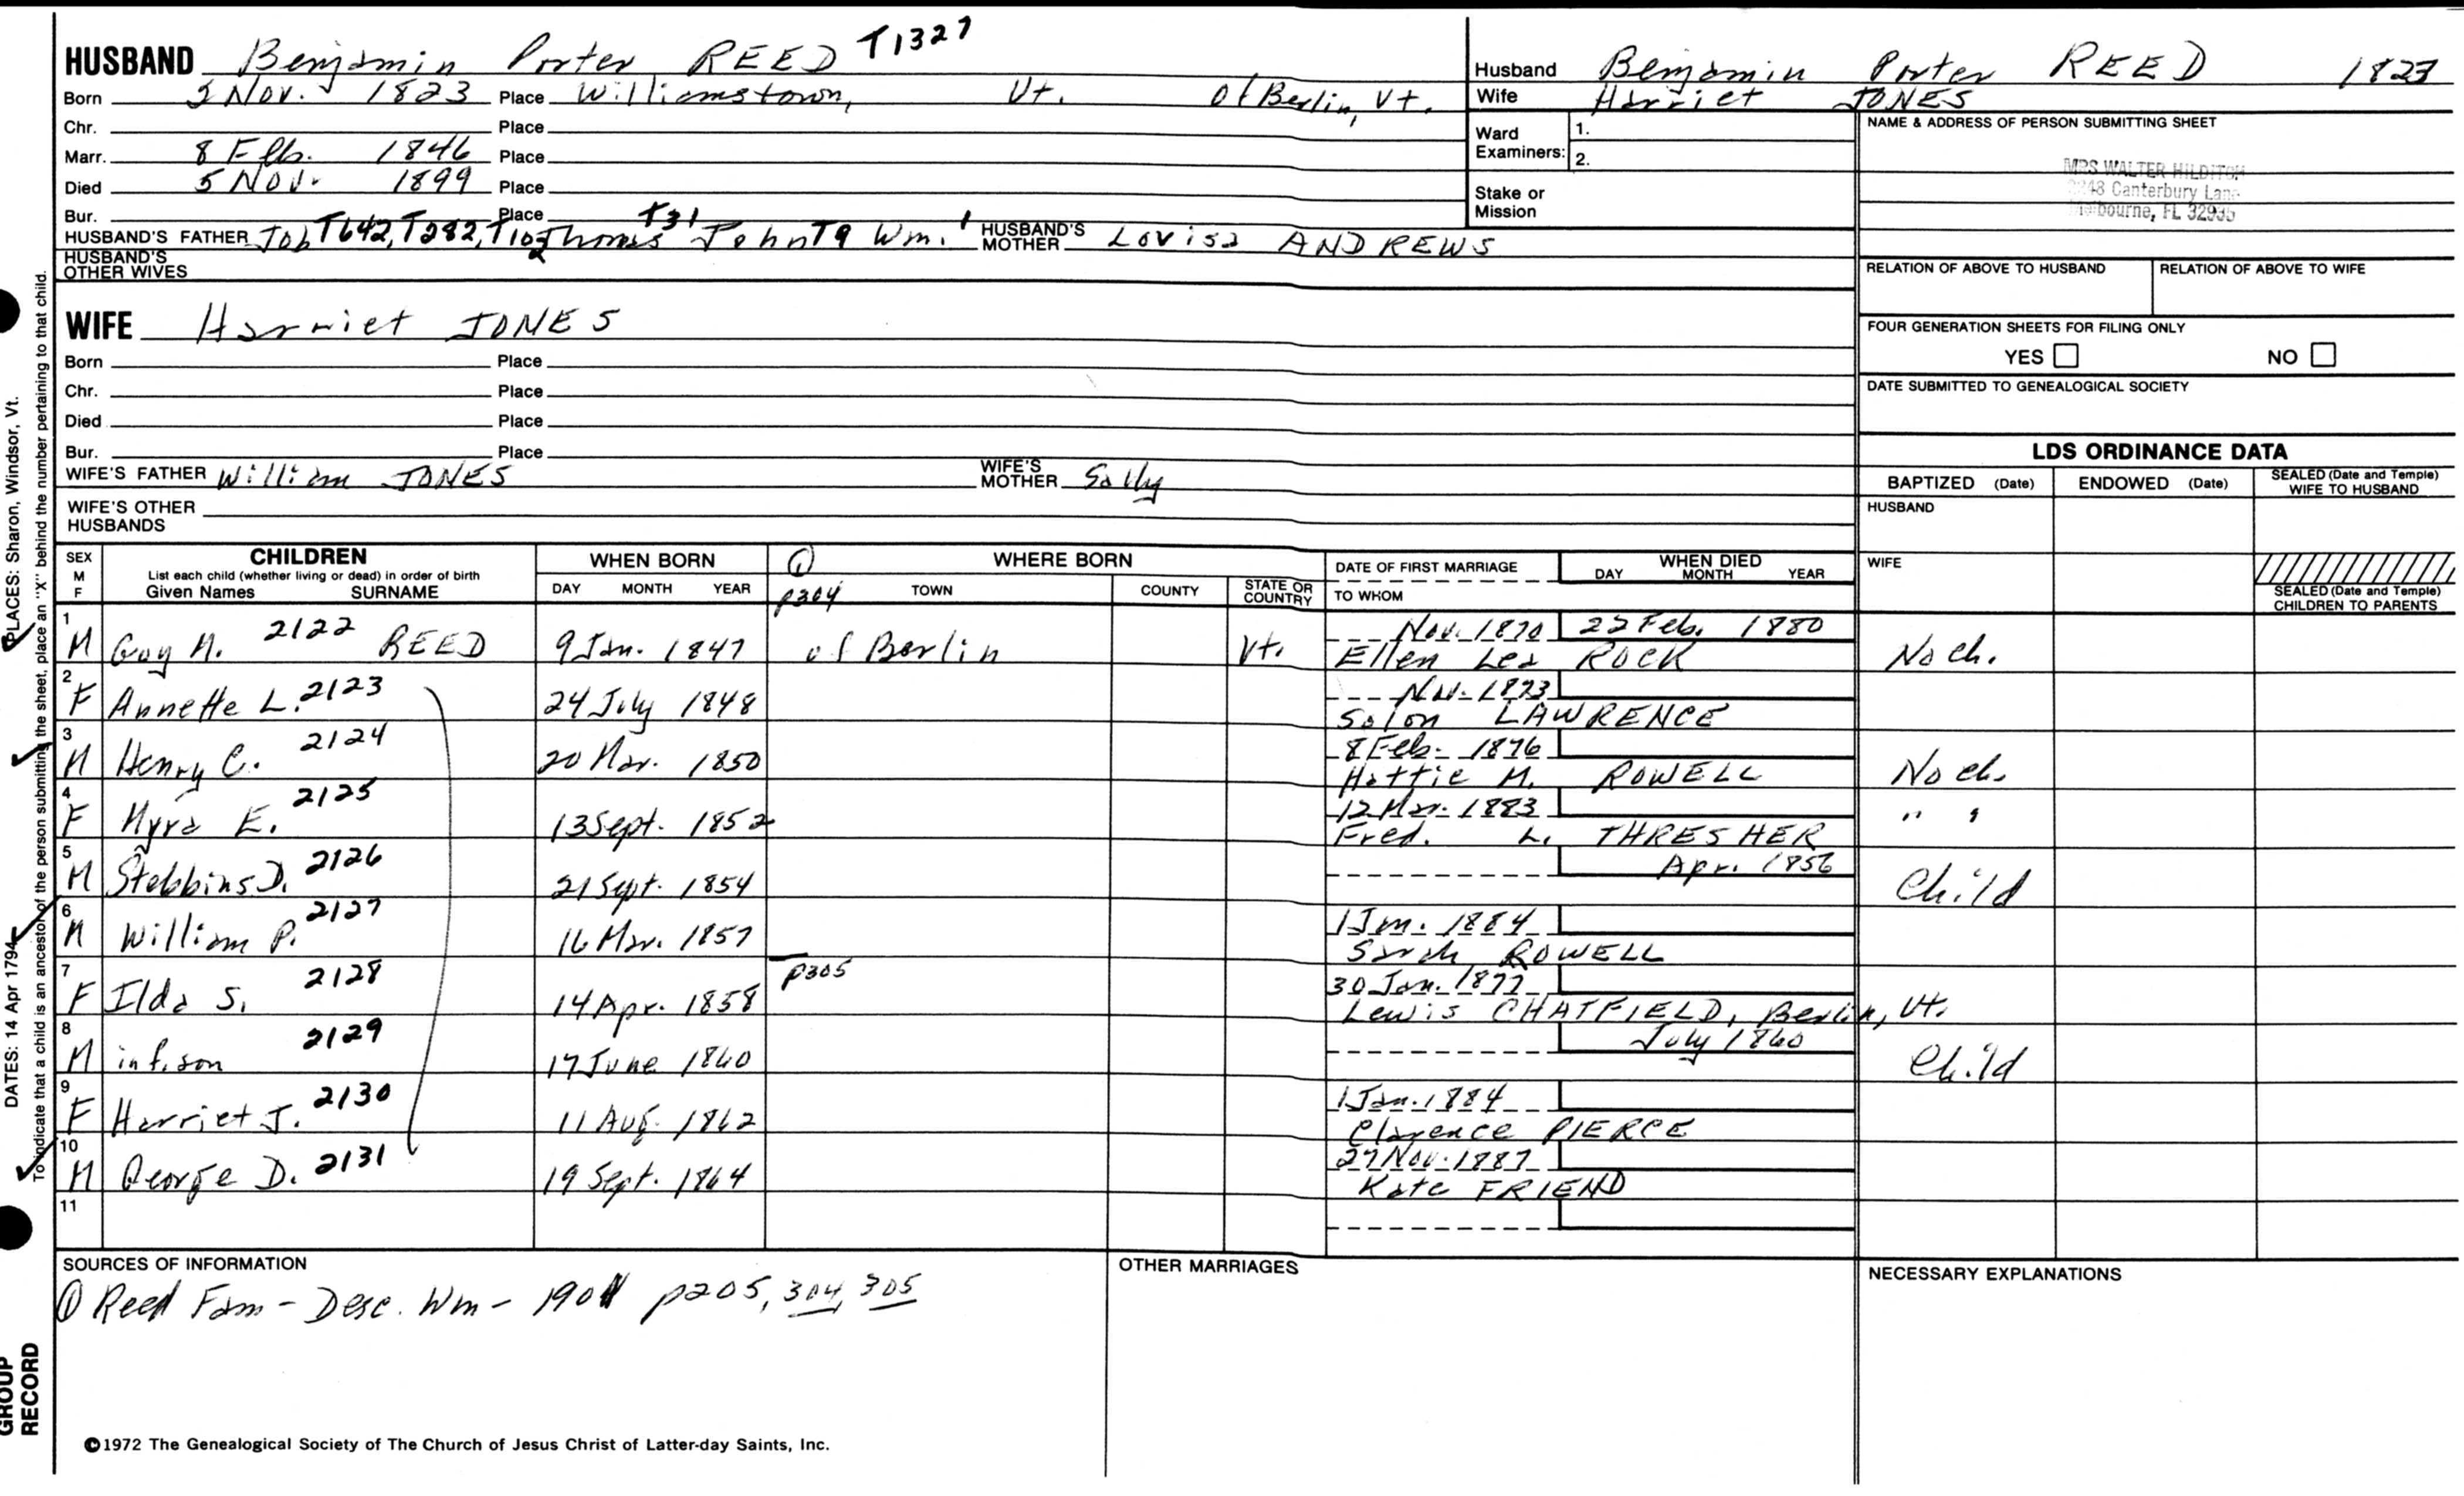 HUSBAND Benjamin Porter REED T1327
Born 5 Nov. 1823 Place Williamstown, Vt. of Berlin, Vt.
Chr. Place
Marr. 8 Feb. 1846 Place
Died 5 Nov. 1899 Place
Bur. Place
HUSBAND'S FATHER Job T642, T282, T102 Thomas T31 John T9 Wm. 1 HUSBAND'S MOTHER Lovisa ANDREWS
HUSBAND'S OTHER WIVES
Husband Benjamin Porter REED 1823
Wife Harriet JONES
Ward Examiners: 1.
2.
Stake or Mission
NAME & ADDRESS OF PERSON SUBMITTING SHEET
MRS WALTER HILDITCH
Canterbury Lane
Melbourne, FL 32935
RELATION OF ABOVE TO HUSBAND RELATION OF ABOVE TO WIFE
FOUR GENERATION SHEETS FOR FILING ONLY
YES NO
DATE SUBMITTED TO GENEALOGICAL SOCIETY
WIFE Harriet JONES
Born Place
Chr. Place
Died Place
Bur. Place
WIFE'S FATHER William JONES WIFE'S MOTHER Sally
WIFE'S OTHER HUSBANDS
LDS ORDINANCE DATA
BAPTIZED (Date) ENDOWED (Date) SEALED (Date and Temple) WIFE TO HUSBAND
HUSBAND
WIFE
SEALED (Date and Temple) CHILDREN TO PARENTS
SEX M F
CHILDREN
List each child (whether living or dead) in order of birth
Given Names SURNAME
WHEN BORN
DAY MONTH YEAR
1 WHERE BORN
p304 TOWN COUNTY STATE OR COUNTRY
DATE OF FIRST MARRIAGE
TO WHOM
WHEN DIED
DAY MONTH YEAR
1 M Guy M. 2122 REED 9 Jan. 1847 of Berlin Vt. Nov. 1870 22 Feb. 1880
Ellen Lea ROCK No ch.
2 F Annette L. 2123 24 July 1848 Nov. 1873
Solon LAWRENCE
3 M Henry C. 2124 20 Mar. 1850 8 Feb. 1876
Hattie M. ROWELL No ch.
4 F Myra E. 2125 13 Sept. 1852 12 Mar. 1883
Fred. L. THRESHER " "
5 M Stebbins D. 2126 21 Sept. 1854 Apr. 1856
Child
6 M William P. 2127 16 Mar. 1857 1 Jan. 1884
Sarah ROWELL
7 F Ilda S. 2128 14 Apr. 1858 p305 30 Jan. 1877
Lewis CHATFIELD, Berlin, Vt.
8 M inf. son 2129 17 June 1860 July 1860
Child
9 F Harriet J. 2130 11 Aug. 1862 1 Jan. 1884
Clarence PIERCE
10 M George D. 2131 19 Sept. 1864 27 Nov. 1887
Kate FRIEND
11
SOURCES OF INFORMATION
1 Reed Fam - Desc. Wm - 1901 p205, 304, 305
OTHER MARRIAGES
NECESSARY EXPLANATIONS
©1972 The Genealogical Society of The Church of Jesus Christ of Latter-day Saints, Inc.
PLACES: Sharon, Windsor, Vt.
DATES: 14 Apr 1794
To indicate that a child is an ancestor of the person submitting the sheet, place an "X" behind the number pertaining to that child.
GROUP
RECORD